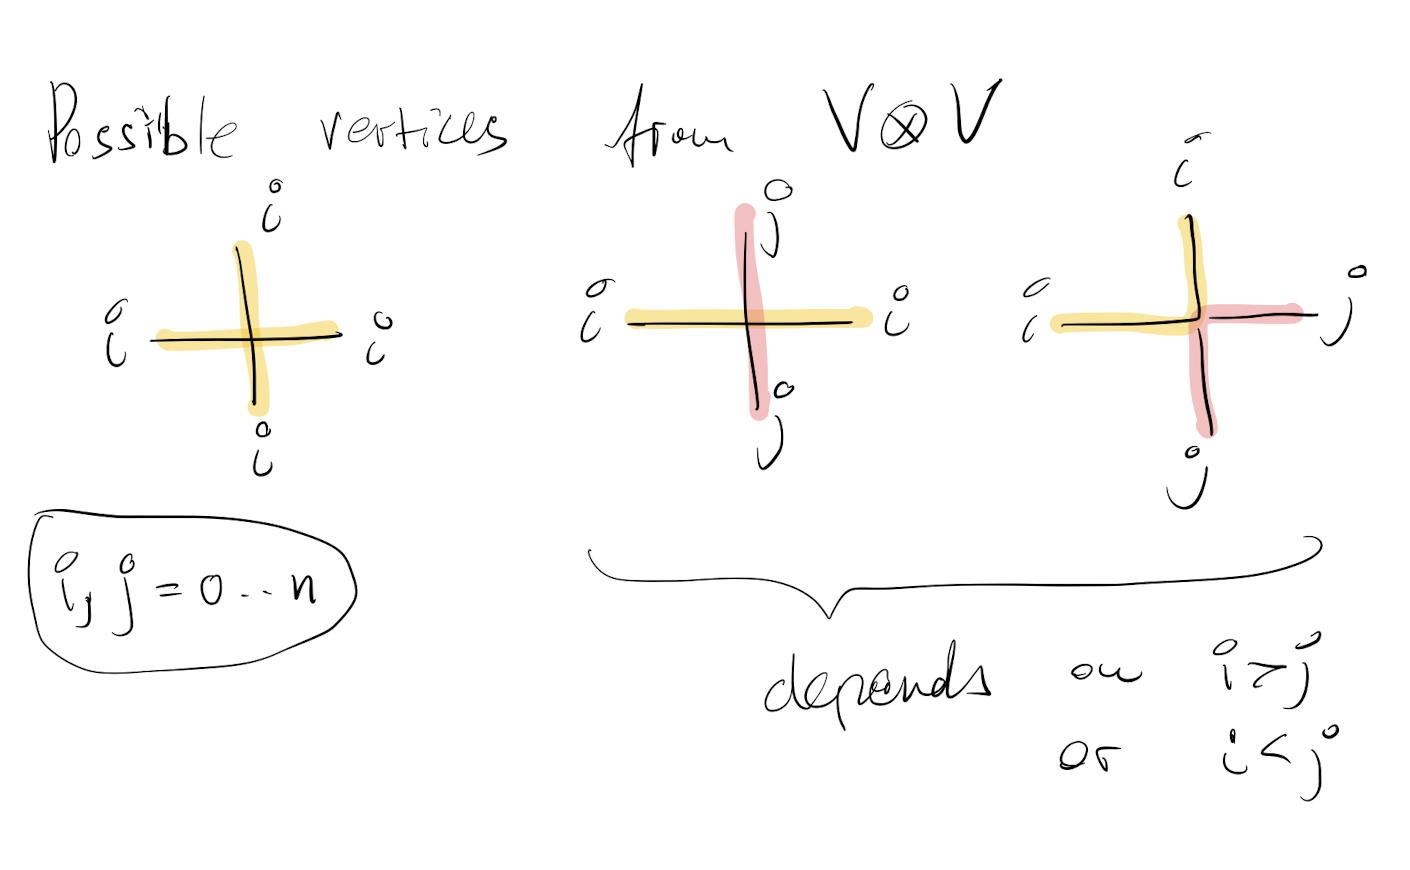 Possible vertices from V⊗V
i
i
i
i
j
i
i
j
i
i
j
j
i, j = 0..n
depends on i>j
or i<j